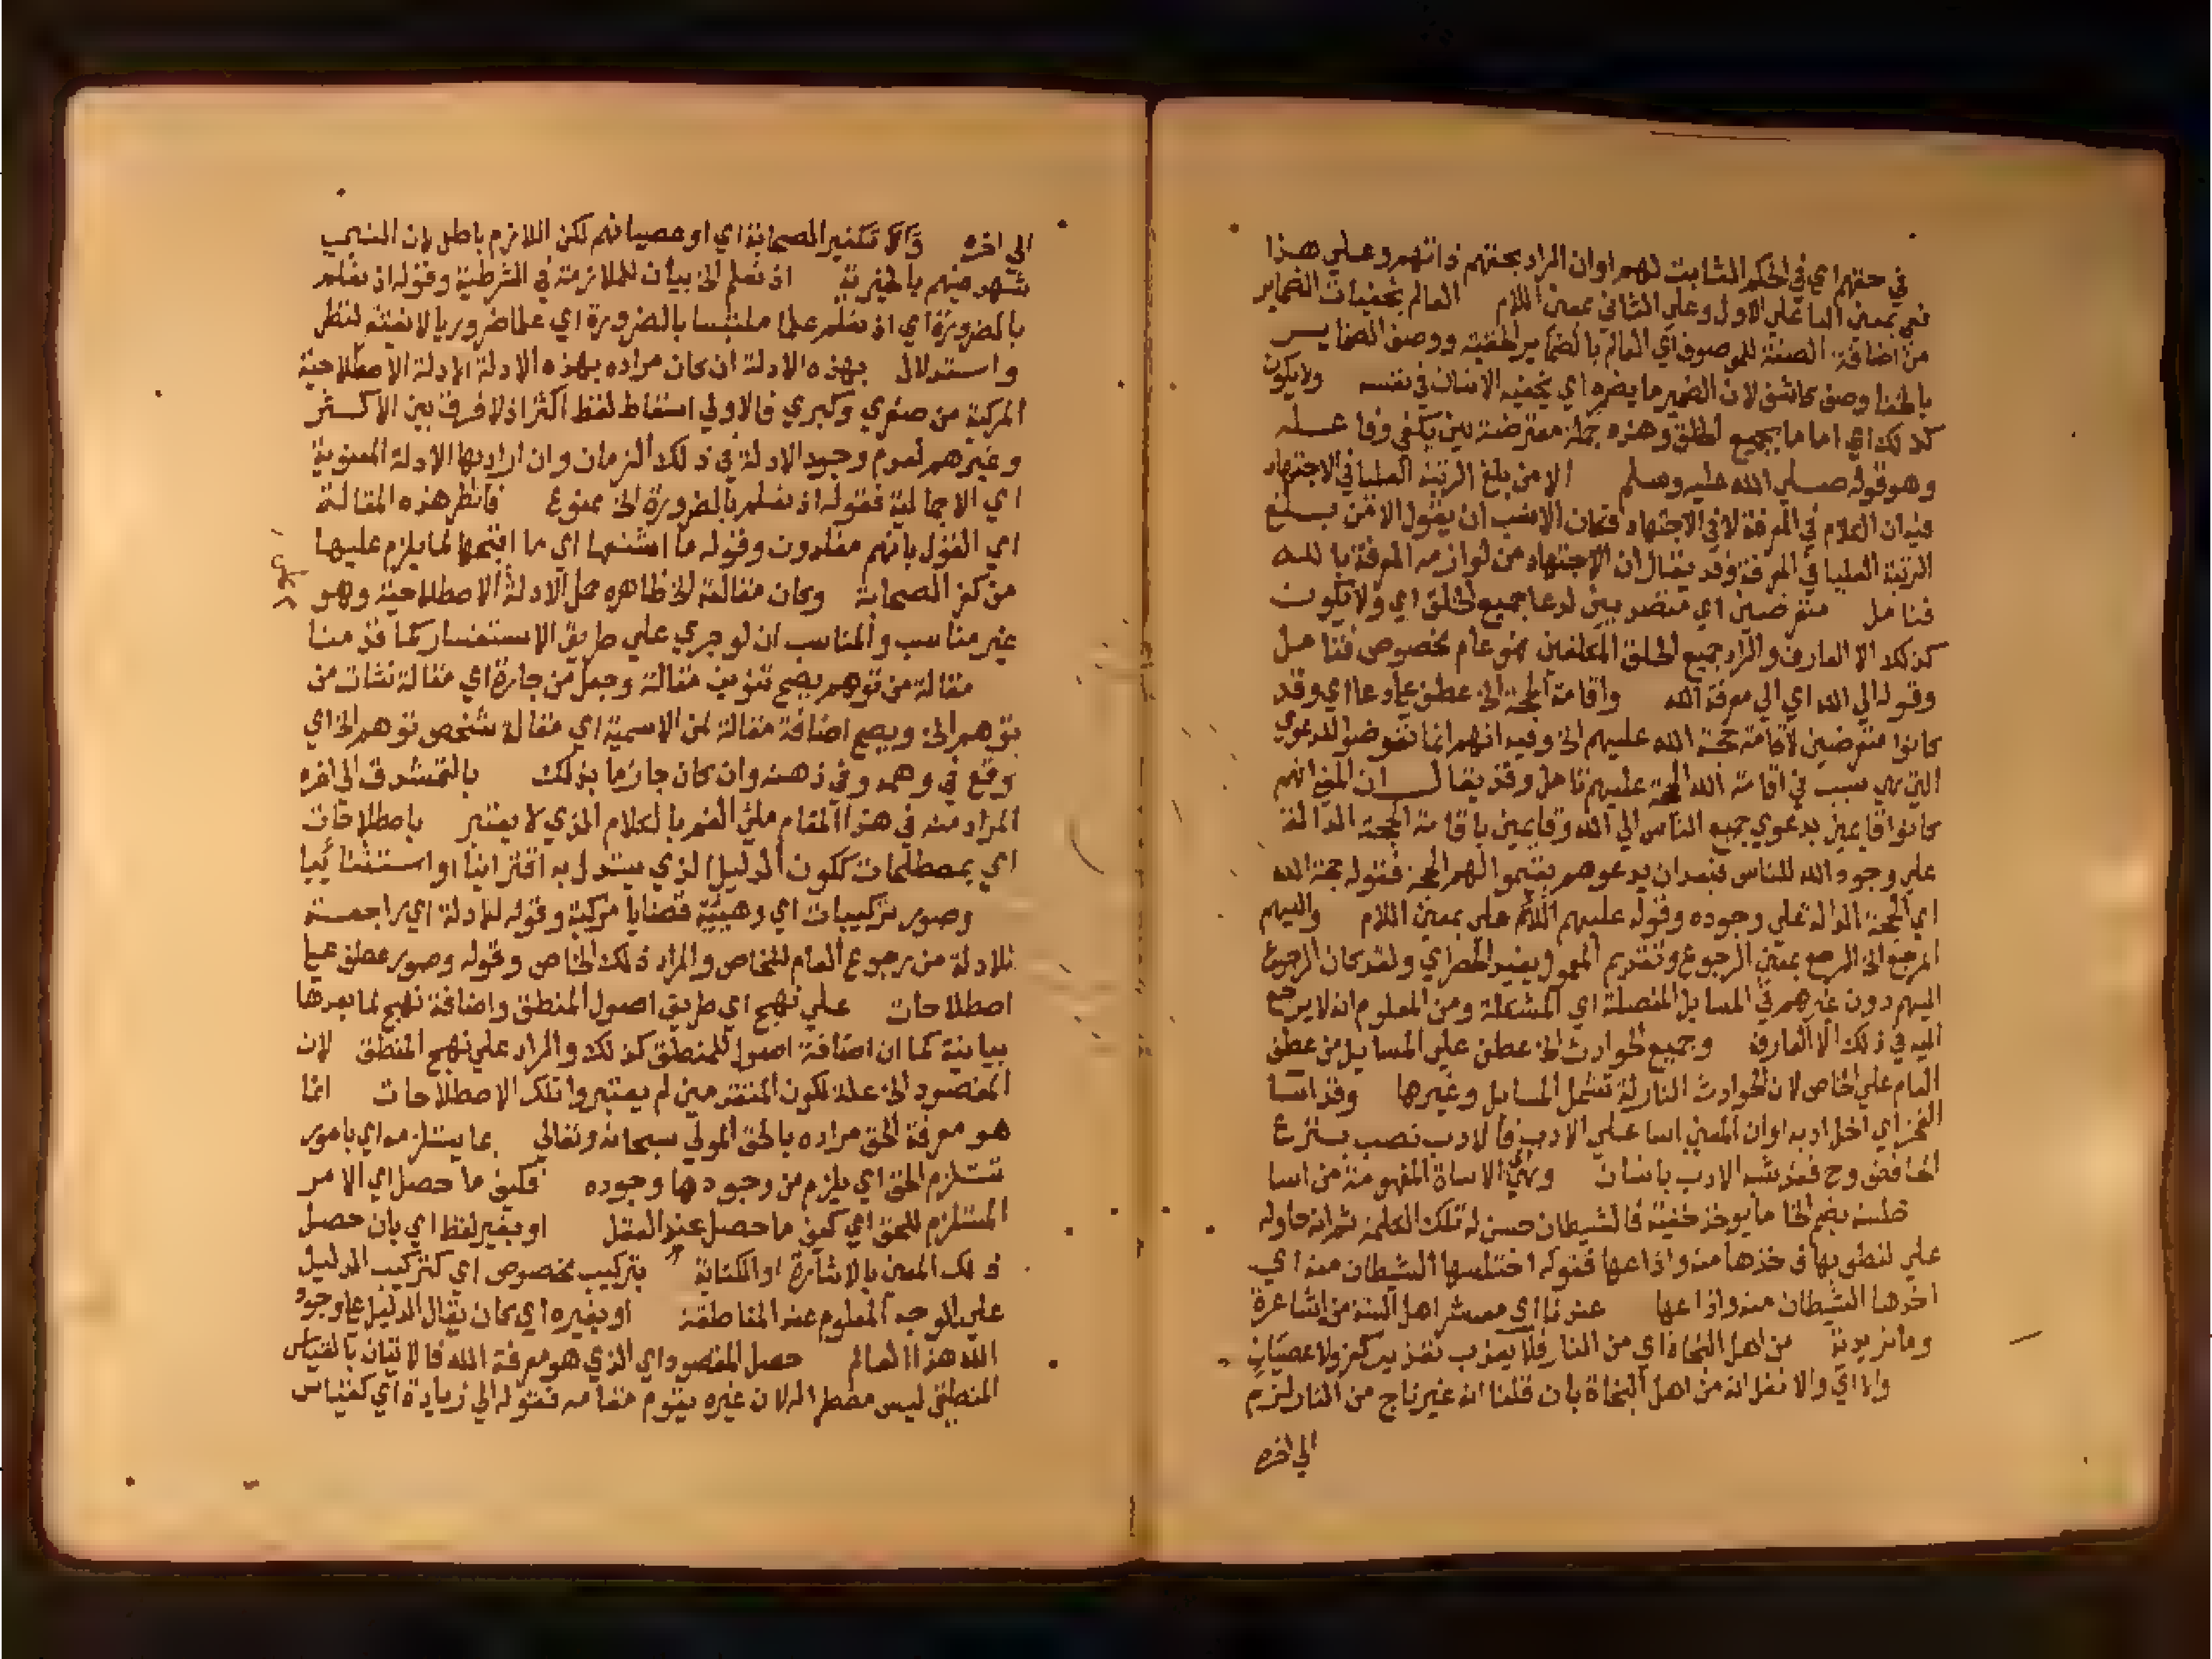 في حقهم اي في الحكم الثابت لهم اوان المراد بحقهم ذاتهم وعلي هذا
في بمعني الباعلي الاول وعلي الثاني بمعني اللام العالم بخفيات الضماير
من اضافة الصفة للموصوف اي العالم بالضماير الخفية ووصف الضماير
بالخفا وصف كاشف لان الضمير ما يضره اي يخفيه الانسان في نفسه ولا يكون
كذلك اي اماما بجميع الخلق وهذه جملة معترضة بين يكفي وفاعله
وهو قوله صلي الله عليه وسلم الا من بلغ الرتبة العليا في الاجتهاد
فيه ان الكلام في المعرفة لا في الاجتهاد فكان الانسب ان يقول الا من بلغ
الرتبة العليا في المعرفة وقد يقال ان الاجتهاد من لوازمه المعرفة بالله
فتامل متعرضين اي متصدرين لدعا جميع الخلق اي ولا يكون
كذلك الا العارف والمراد جميع الخلق المكلفين فهو عام مخصوص فتامل
وقوله الي الله اي الي معرفة الله واقامة الحجة الخ عطف علي دعا اي وقد
كانوا متعرضين لاقامة حجة الله عليهم الخ وفيه انهم انما تعرضوا للدعوي
التي هي سبب في اقامة الله الحجة عليهم تامل وقد يقال ان المعني انهم
كانوا قايمين بدعوي جميع الناس الي الله وقايمين باقامة الحجة الدالة
علي وجود الله للناس فبعد ان يدعوهم يقيموا لهم الحجة فقوله حجة الله
اي الحجة الدالة علي وجوده وقوله عليهم علي بمعني اللام واليهم
المرجع الخ المرجع بمعني الرجوع وتقديم المعمول يفيد الحصر اي ولقد كان الرجوع
اليهم دون غيرهم في المسايل المنصلة اي المشكلة ومن المعلوم انه لا يرجع
اليه في ذلك الا العارف وجميع الحوادث الخ عطف علي المسايل من عطف
العام علي الخاص لان الحوادث النازلة تشمل المسايل وغيرها وقد اسا
الفخر اي اخل ادبه اوان المعني اسا علي الادب فالادب نصب بنزع
الخافض وح فقد شبه الادب بانسان وهي الاساة المفهومة من اسا
خلسة بضم الخا ما يوخذ خفية فالشيطان حسن له تلك الكلمة ثم انه حاوله
علي لنطق بها فاخذها منه واذاعها فقوله اختلسها الشيطان منه اي
اخذها الشيطان منه واذاعها عندنا اي معشر اهل السنة من اشاعرة
وماتريدية من اهل النجاة اي من النار فلا يعذب تعذيب كفر ولا عصيان
والا اي والا نقل انه من اهل النجاة بان قلنا انه غير ناج من النار لزم
الي اخره
الي اخره والا تكفير الصحابة اي او عصيانهم لكن اللازم باطل لان النبي
شهد منهم بالخيرية اذ نعلم الخ بيان للملازمة في الشرطية وقوله اذ نعلم
بالضرورة اي اذ نعلم علما ملتبسا بالضرورة اي علما ضروريا لا يفتقر لنظر
واستدلال بهذه الادلة ان كان مراده بهذه الادلة الادلة الاصطلاحية
المركبة من صغري وكبري فالاولي اسقاط لفظ اكثر اذ لا فرق بين الاكثر
وغيرهم لعدم وجود الادلة في ذلك الزمان وان اراد بها الادلة المعنوية
اي الاجمالية فقوله اذ نعلم بالضرورة الخ ممنوع فانظر هذه المقالة
اي القول بانهم مقلدون وقوله ما اشنعها اي ما اقبحها لما يلزم عليها
من كفر الصحابة وكان مقالة الخ ظاهره حمل الادلة الاصطلاحية وهو
غير مناسب والمناسب ان لو جري علي طريق الاستفسار كما قدمنا
مقالة من توهم يصح تنوين مقالة وجعل من جارة اي مقالة نشات من
توهم الخ ويصح اضافة مقالة لمن الاسمية اي مقالة شخص توهم الخ اي
وقع في وهمه وفي ذهنه وان كان جازما بذلك بالتشدق الي اخره
المراد منه في هذا المقام ملئ الفم بالكلام الذي لا يعتبر باصطلاحات
اي بمصطلحات ككون الدليل الذي يستدل به اقترانيا او استثنائيا
وصور تركيبات اي وهيئة قضايا مركبة وقوله للادلة اي راجعة
للادلة من رجوع العام للخاص والمراد ذلك الخاص وقوله وصور عطف علي
اصطلاحات علي نهج اي طريق اصول المنطق واضافة نهج لما بعدها
بيانية كما ان اضافة اصول للمنطق كذلك والمراد علي نهج المنطق لان
المقصود الخ علة لكون المتقدمين لم يعتبروا تلك الاصطلاحات انما
هو معرفة الحق مراده بالحق المولي سبحانه وتعالي بما يستلزمه اي بامور
تستلزم الحق اي يلزم من وجودها وجوده فكيف ما حصل اي الامر
المستلزم للحق اي كيف ما حصل عند العقل او بغير لفظ اي بان حصل
ذلك المعني بالاشارة او الكتابة بتركيب مخصوص اي كتركيب الدليل
علي الوجه المعلوم عند المناطقة او بغيره اي كان يقال الدليل علي وجود
الله هذا العالم حصل المقصود اي الذي هو معرفة الله فالاتيان بالقياس
المنطقي ليس مضطرا له لان غيره يقوم مقامه فقوله الي زيادة اي كقياس